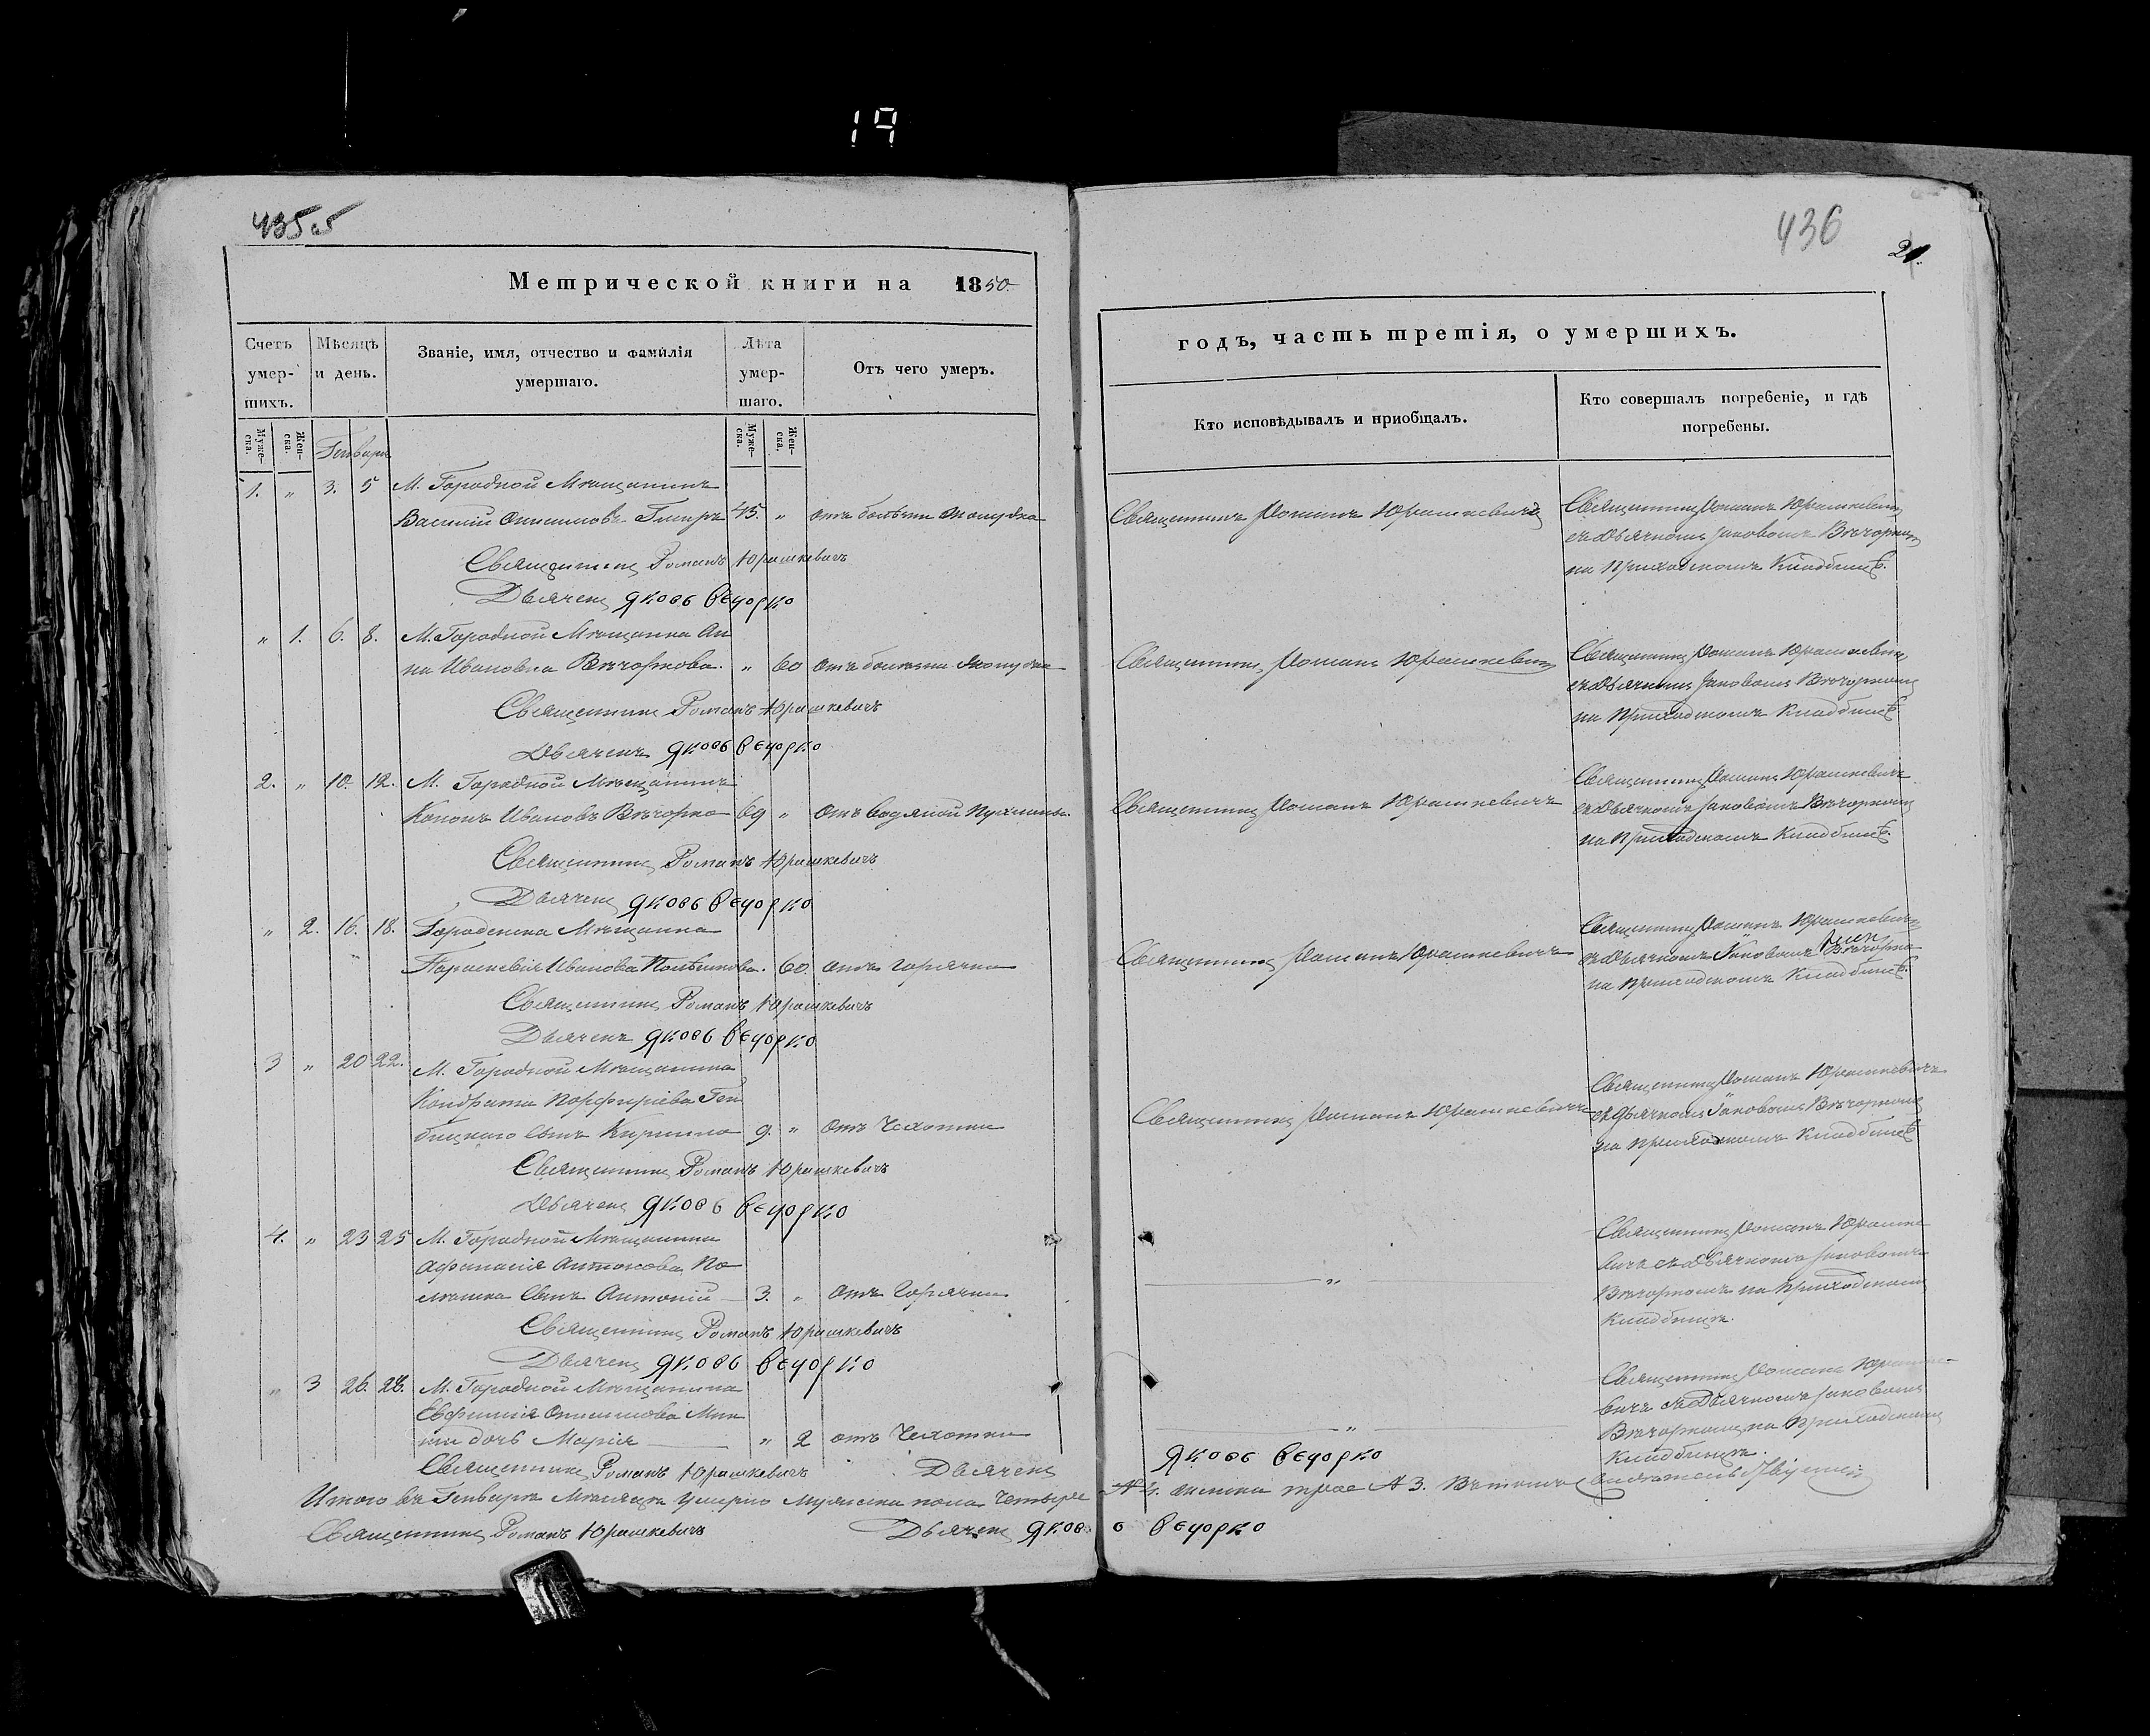 19
435 об
Метрической книги на 1850.
Счетъ умер-шихъ.
Мѣсяцъ и день.
Званіе, имя, отчество и фамилія умершаго.
Лѣта умер-шаго.
Отъ чего умеръ.
Муже-ска.
Жен-ска.
Генваря
Муже-ска.
Жен-ска.
1. " 3. 5 М. Городной Мѣщанинъ
Василій Онисимовъ 45. " отъ болѣзни желудка
Священникъ Романъ Юрашкевичъ
Дьячекъ Яковъ Вечорко
" 1. 6. 8. М. Городной Мѣщанка Ан
на Ивановна Вѣчоркова. " 60 отъ болѣзни желудка
Священникъ Романъ Юрашкевичъ
Дьячекъ Яковъ Вечорко
2. " 10. 12. М. Городной Мѣщанинъ
Кононъ Ивановъ Вѣчорко 69 " отъ водяной пухлины.
Священникъ Романъ Юрашкевичъ
Дьячекъ Яковъ Вечорко
" 2. 16. 18. Городенска Мѣщанка
Параскевія Иванова 60. отъ горячки
Священникъ Романъ Юрашкевичъ
Дьячекъ Яковъ Вечорко
3 " 20 22. М. Городной Мѣщанина
Кондрата Порфиріева
сынъ Кирилло 9. " отъ чахотки
Священникъ Романъ Юрашкевичъ
Дьячекъ Яковъ Вечорко
4. " 23 25 М. Городной Мѣщанина
Афанасія Антонова По
лѣшка сынъ Антоній 3. " отъ горячки
Священникъ Романъ Юрашкевичъ
Дьячекъ Яковъ Вечорко
" 3 26. 28. М. Городной Мѣщанина
Евфимія Онисимова
дочь Марія " 2 отъ чахотки
Священникъ Романъ Юрашкевичъ Дьячекъ Яковъ Вечорко
Итого въ Генварѣ Мѣсяцѣ умерло мужеска пола четыре № 4. женска трое № 3. Въ томъ
Священникъ Романъ Юрашкевичъ Дьячекъ Яковъ Вечорко
436
годъ, часть третія, о умершихъ.
Кто исповѣдывалъ и приобщалъ.
Кто совершалъ погребеніе, и гдѣ погребены.
Священникъ Романъ Юрашкевичъ
Священникъ Романъ Юрашкевичъ
съ Дьячкомъ Іаковомъ Вѣчоркомъ
на приходскомъ кладбищѣ.
Священникъ Романъ Юрашкевичъ
Священникъ Романъ Юрашкевичъ
съ Дьячкомъ Іаковомъ Вѣчоркомъ
на приходскомъ кладбищѣ.
Священникъ Романъ Юрашкевичъ
Священникъ Романъ Юрашкевичъ
съ Дьячкомъ Іаковомъ Вѣчоркомъ
на приходскомъ кладбищѣ.
Священникъ Романъ Юрашкевичъ
Священникъ Романъ Юрашкевичъ
съ Дьячкомъ Іаковомъ Вѣчорко
на приходскомъ кладбищѣ.
Священникъ Романъ Юрашкевичъ
Священникъ Романъ Юрашкевичъ
съ Дьячкомъ Іаковомъ Вѣчоркомъ
на приходскомъ кладбищѣ
"
Священникъ Романъ Юрашке
вичъ съ Дьячкомъ Іаковомъ
Вѣчоркомъ на приходскомъ
кладбищѣ.
"
Священникъ Романъ Юрашке-
вичъ съ Дьячкомъ Іаковомъ
Вѣчоркомъ на приходскомъ
кладбищѣ.